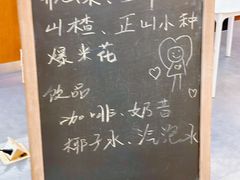 山楂、正山小种
爆米花
饮品
咖啡、奶昔
椰子水、汽泡水